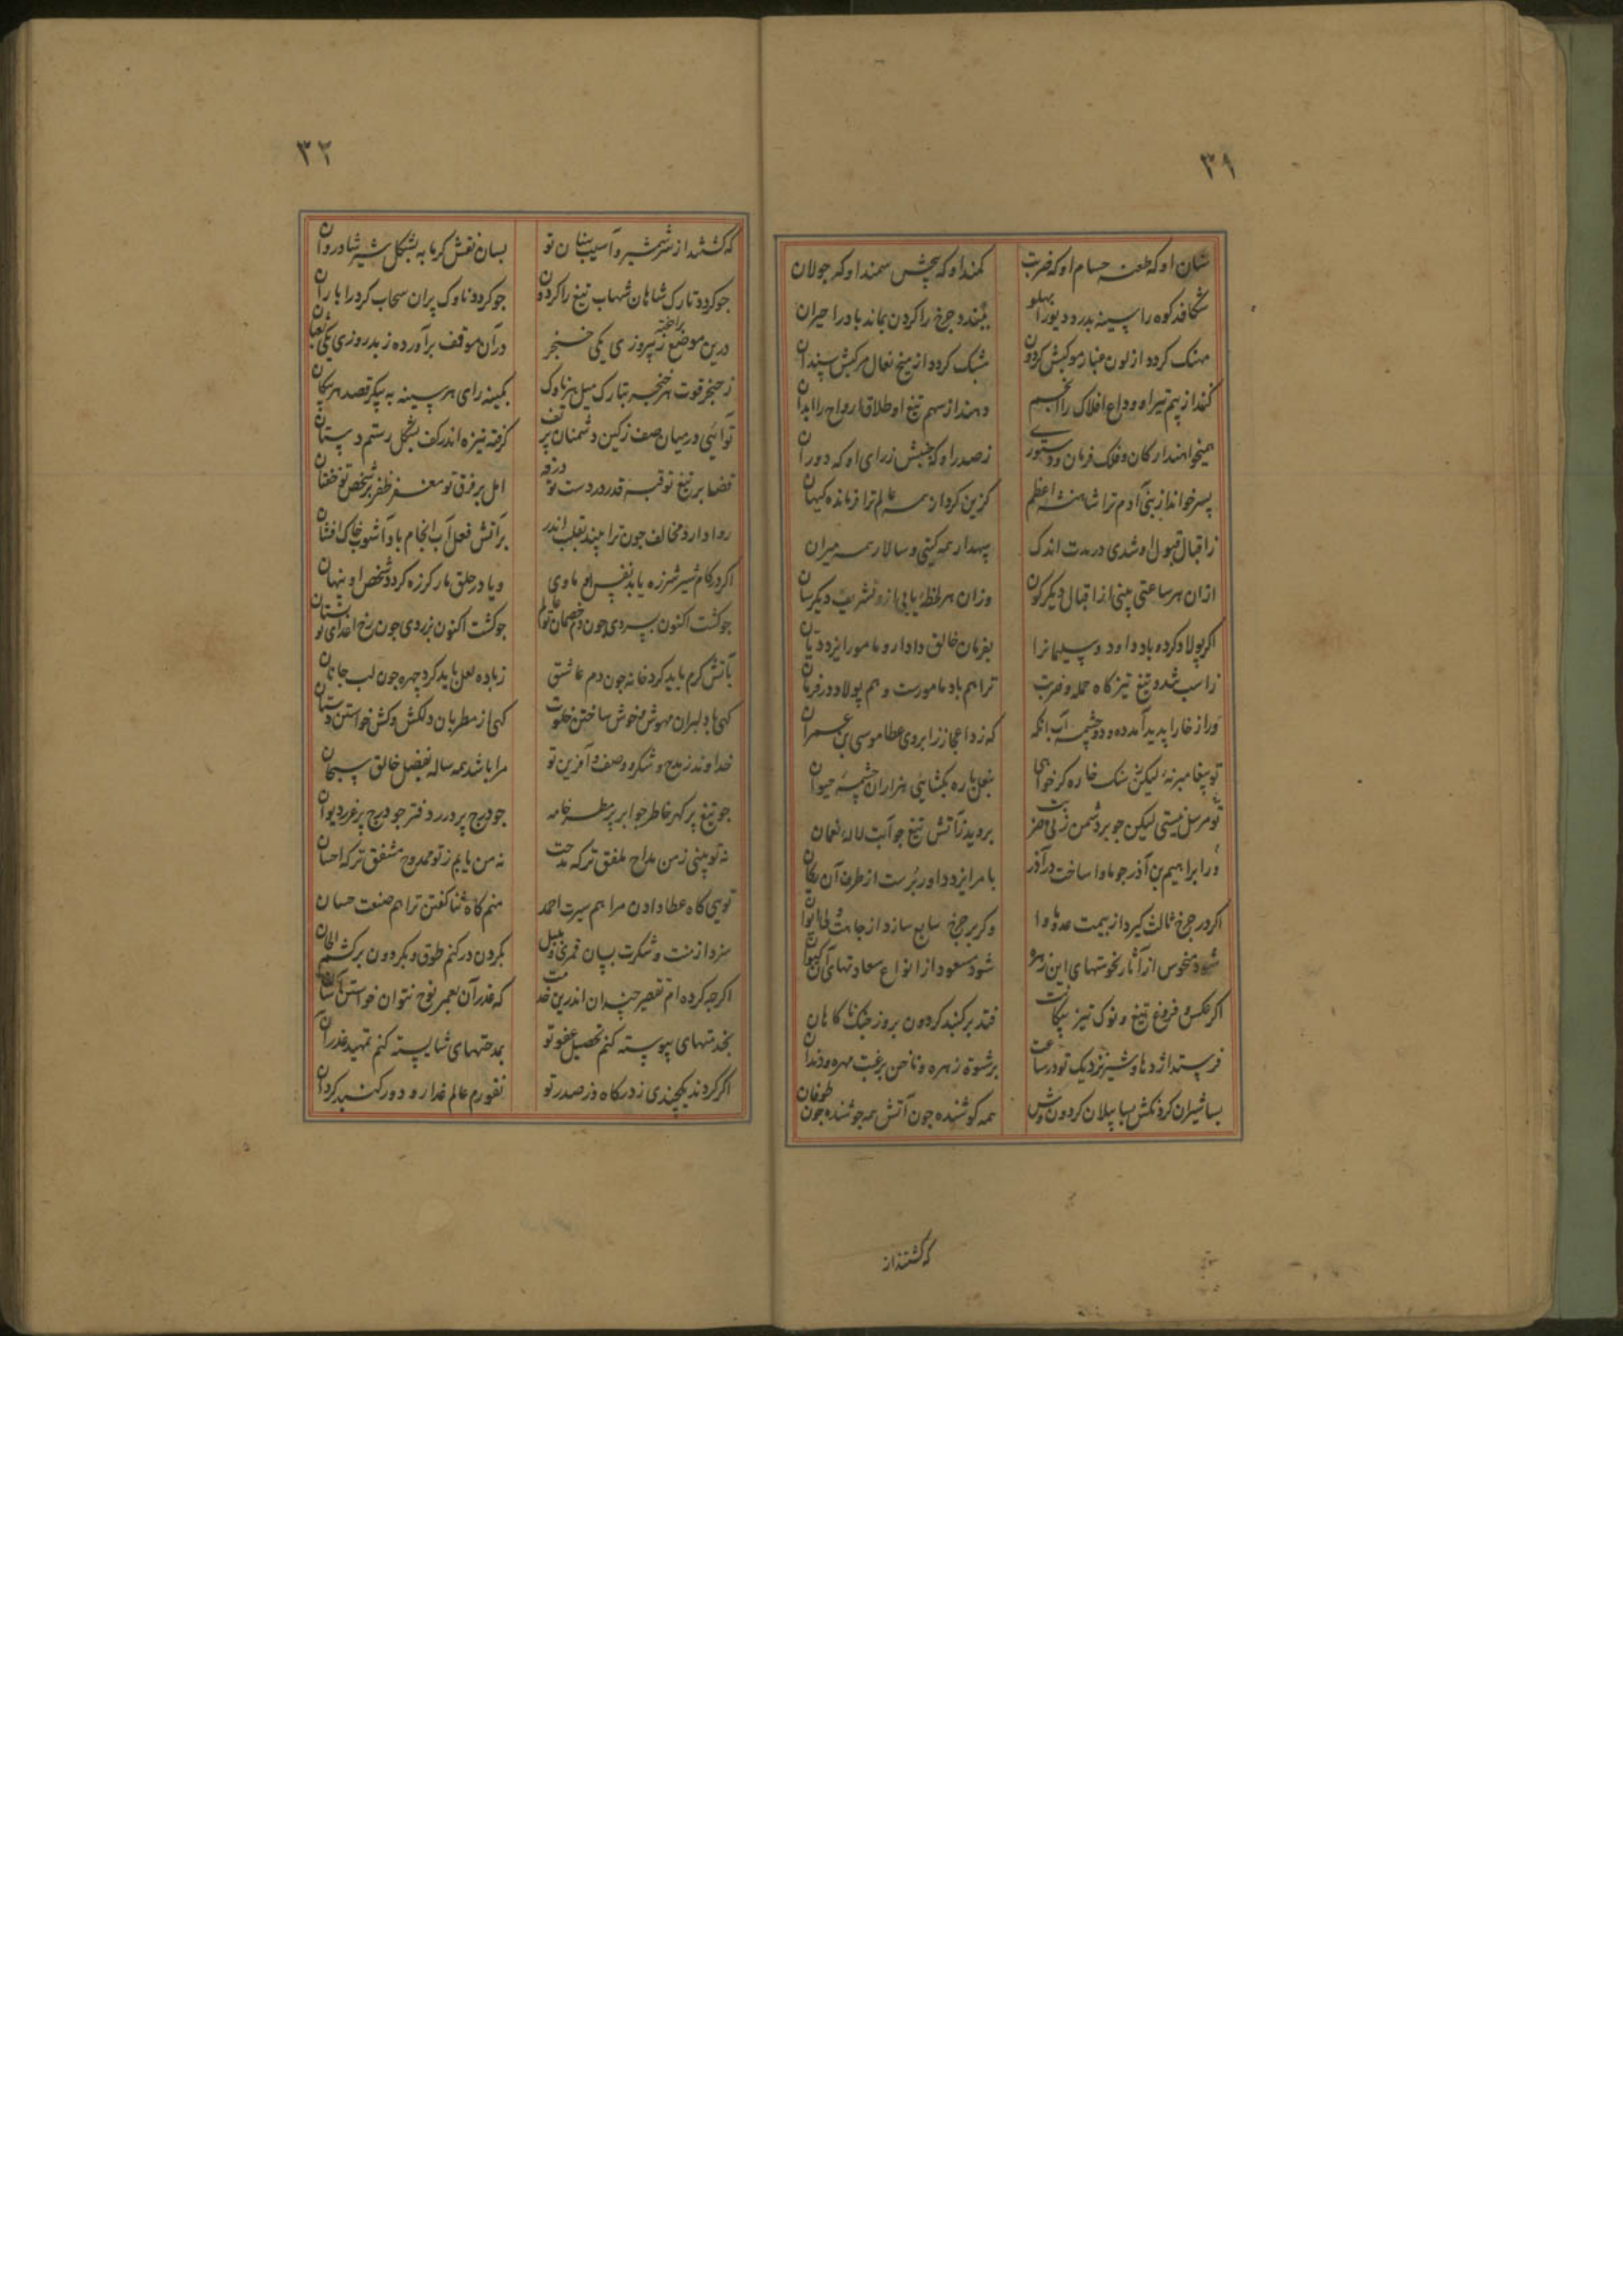 ۳۱
سنان او که طعنه حسام او که ضرب کمند او که پیچش سمند او که جولان
شکافد کوه را سینه بدرد دیو را پهلو ببندد چرخ را کردن بماند باد را حیران
کردد از لون غبار موکبش کردون مشبک کردد از میخ نعال مرکبش سندان
کند از بیم تیر او وداع افلاک را انجم دهند از سهم تیغ او طلاق ارواح را ابدان
همیخواهند ارکان و فلک فرمان و دستوری ز صدر او که جنبش ز رای او که دوران
پسر خواند از بنی آدم ترا شاهنشه اعظم کزین کرد از همه عالم ترا فرمانده کیهان
ز اقبال قبول او شدی در مدت اندک سپهدار همه کیتی و سالار همه میران
ازان هر ساعتی بینی ازا قبال دیکر کون وزان هر لحظه یابی ازو تشریف دیکر سان
اکر پولاد کرده باد داود و سلیمانرا بفرمان خالق دادار و مامور ایزد دیان
ز اسب تند و تیغ تیز کاه حمله و ضربت ترا هم باد مامورست و هم پولاد در فرمان
ور از خارا پدید آمد ده و دو چشمه آب آنکه که زد اعجاز را بر وی عصا موسی بن عمران
تو پیغامبر نه لیکن سنک خاره کر خواهی بنعل باره بکشائی هزاران چشمه حیوان
تو مرسل نیستی لیکن چو بر دشمن زنی بروید ز آتش تیغ چو آبت لاله نعمان
ور ابراهیم بن آذر چو ماوا ساخت در آذر بامر ایزد داور برست از طرف آن
اکر در چرخ ثالث کیرد از بیمت عدو ماوا وکر بر چرخ سابع سازد از جاهت ولی ایوان
شود منحوس از آثار نحوستهای این زهره شود مسعود از انواع سعادتهای آن کیوان
اکر عکس و فروغ تیغ و نوک تیز پیکانت فتد بر کنبد کردون بروز جنک ناکاهان
فرستد اژدها و شیر نزدیک تو در ساعت برشوة زهره و ناخن برغبت مهره و دندان
بسا شیران کردنکش بسا پیلان کردون وش همه کوشنده چون آتش همه جوشنده چون طوفان
که کشتند از
۳۲
که کشتند از سر شمشیر و آسیب سنان تو بسان نقش کرمابه بشکل شیر شادروان
چو کردد تارک شاهان شهاب تیغ را کردون چو کردد ناوک پران سحاب کرد را باران
درین موضع ز پیروزی یکی خنجر برآخته دران موقف برآورده ز بدروزی یکی
ز خنجر فوت هر حنجر بتارک میل هر ناوک بکینه رای هر سینه به پیکر قصد هر پیکان
تو آئی در میان صف ز کین دشمنان پر تف کرفته نیزه اندر کف بشکل رستم دستان
قضا بر تیغ تو قبضه قدر در دست تو امل بر فرق تو مغفر ظفر بر شخص تو خفتان
روا دارد مخالف چون ترا بیند بقلب اندر بر آتش فعل آب انجام باد آشوب خاک افشان
اکر در کام شیر شرزه یابد نفس او ماوی و یا در حلق مار کرزه کردد شخص او پنهان
چو کشت اکنون بسردی چون دم خصمان تو عالم چو کشت اکنون بزردی چون رخ اعدای تو بستان
بآتش کرم باید کرد خانه چون دم عاشق ز باده لعل باید کرد چهره چون لب جانان
کهی با دلبران مهوش خوش ساختن خلوت کهی از مطربان دلکش و کش خواستن دستان
خداوند ز مدح و شکر و وصف و آفرین تو مرا باشد همه ساله بفضل خالق سبحان
چو تیغ پر کهر خاطر چو ابر پر مطر خامه چو درج پر درر دفتر چو درج پر غرر دیوان
نه تو بینی ز من مداح ملفق تر که مدحت نه من یابم ز تو ممدوح مشفق تر که احسان
تویی کاه عطا دادن مرا هم سیرت احمد منم کاه ثنا کفتن ترا هم صنعت حسان
سزد از منت و شکرت بسان قمری و بلبل بکردن در کنم طوق و بکردون برکشم الحان
اکرچه کرده ام تقصیر چندان اندرین خدمت که عذر آن بعمر نوح نتوان خواستن
بخدمتهای پیوسته کنم تحصیل عفو تو بمدحتهای شایسته کنم تمهید عذر آن
اکر کردند یکچندی ز درکاه و ز صدر تو نفورم عالم غدار و دور کنبد کردان